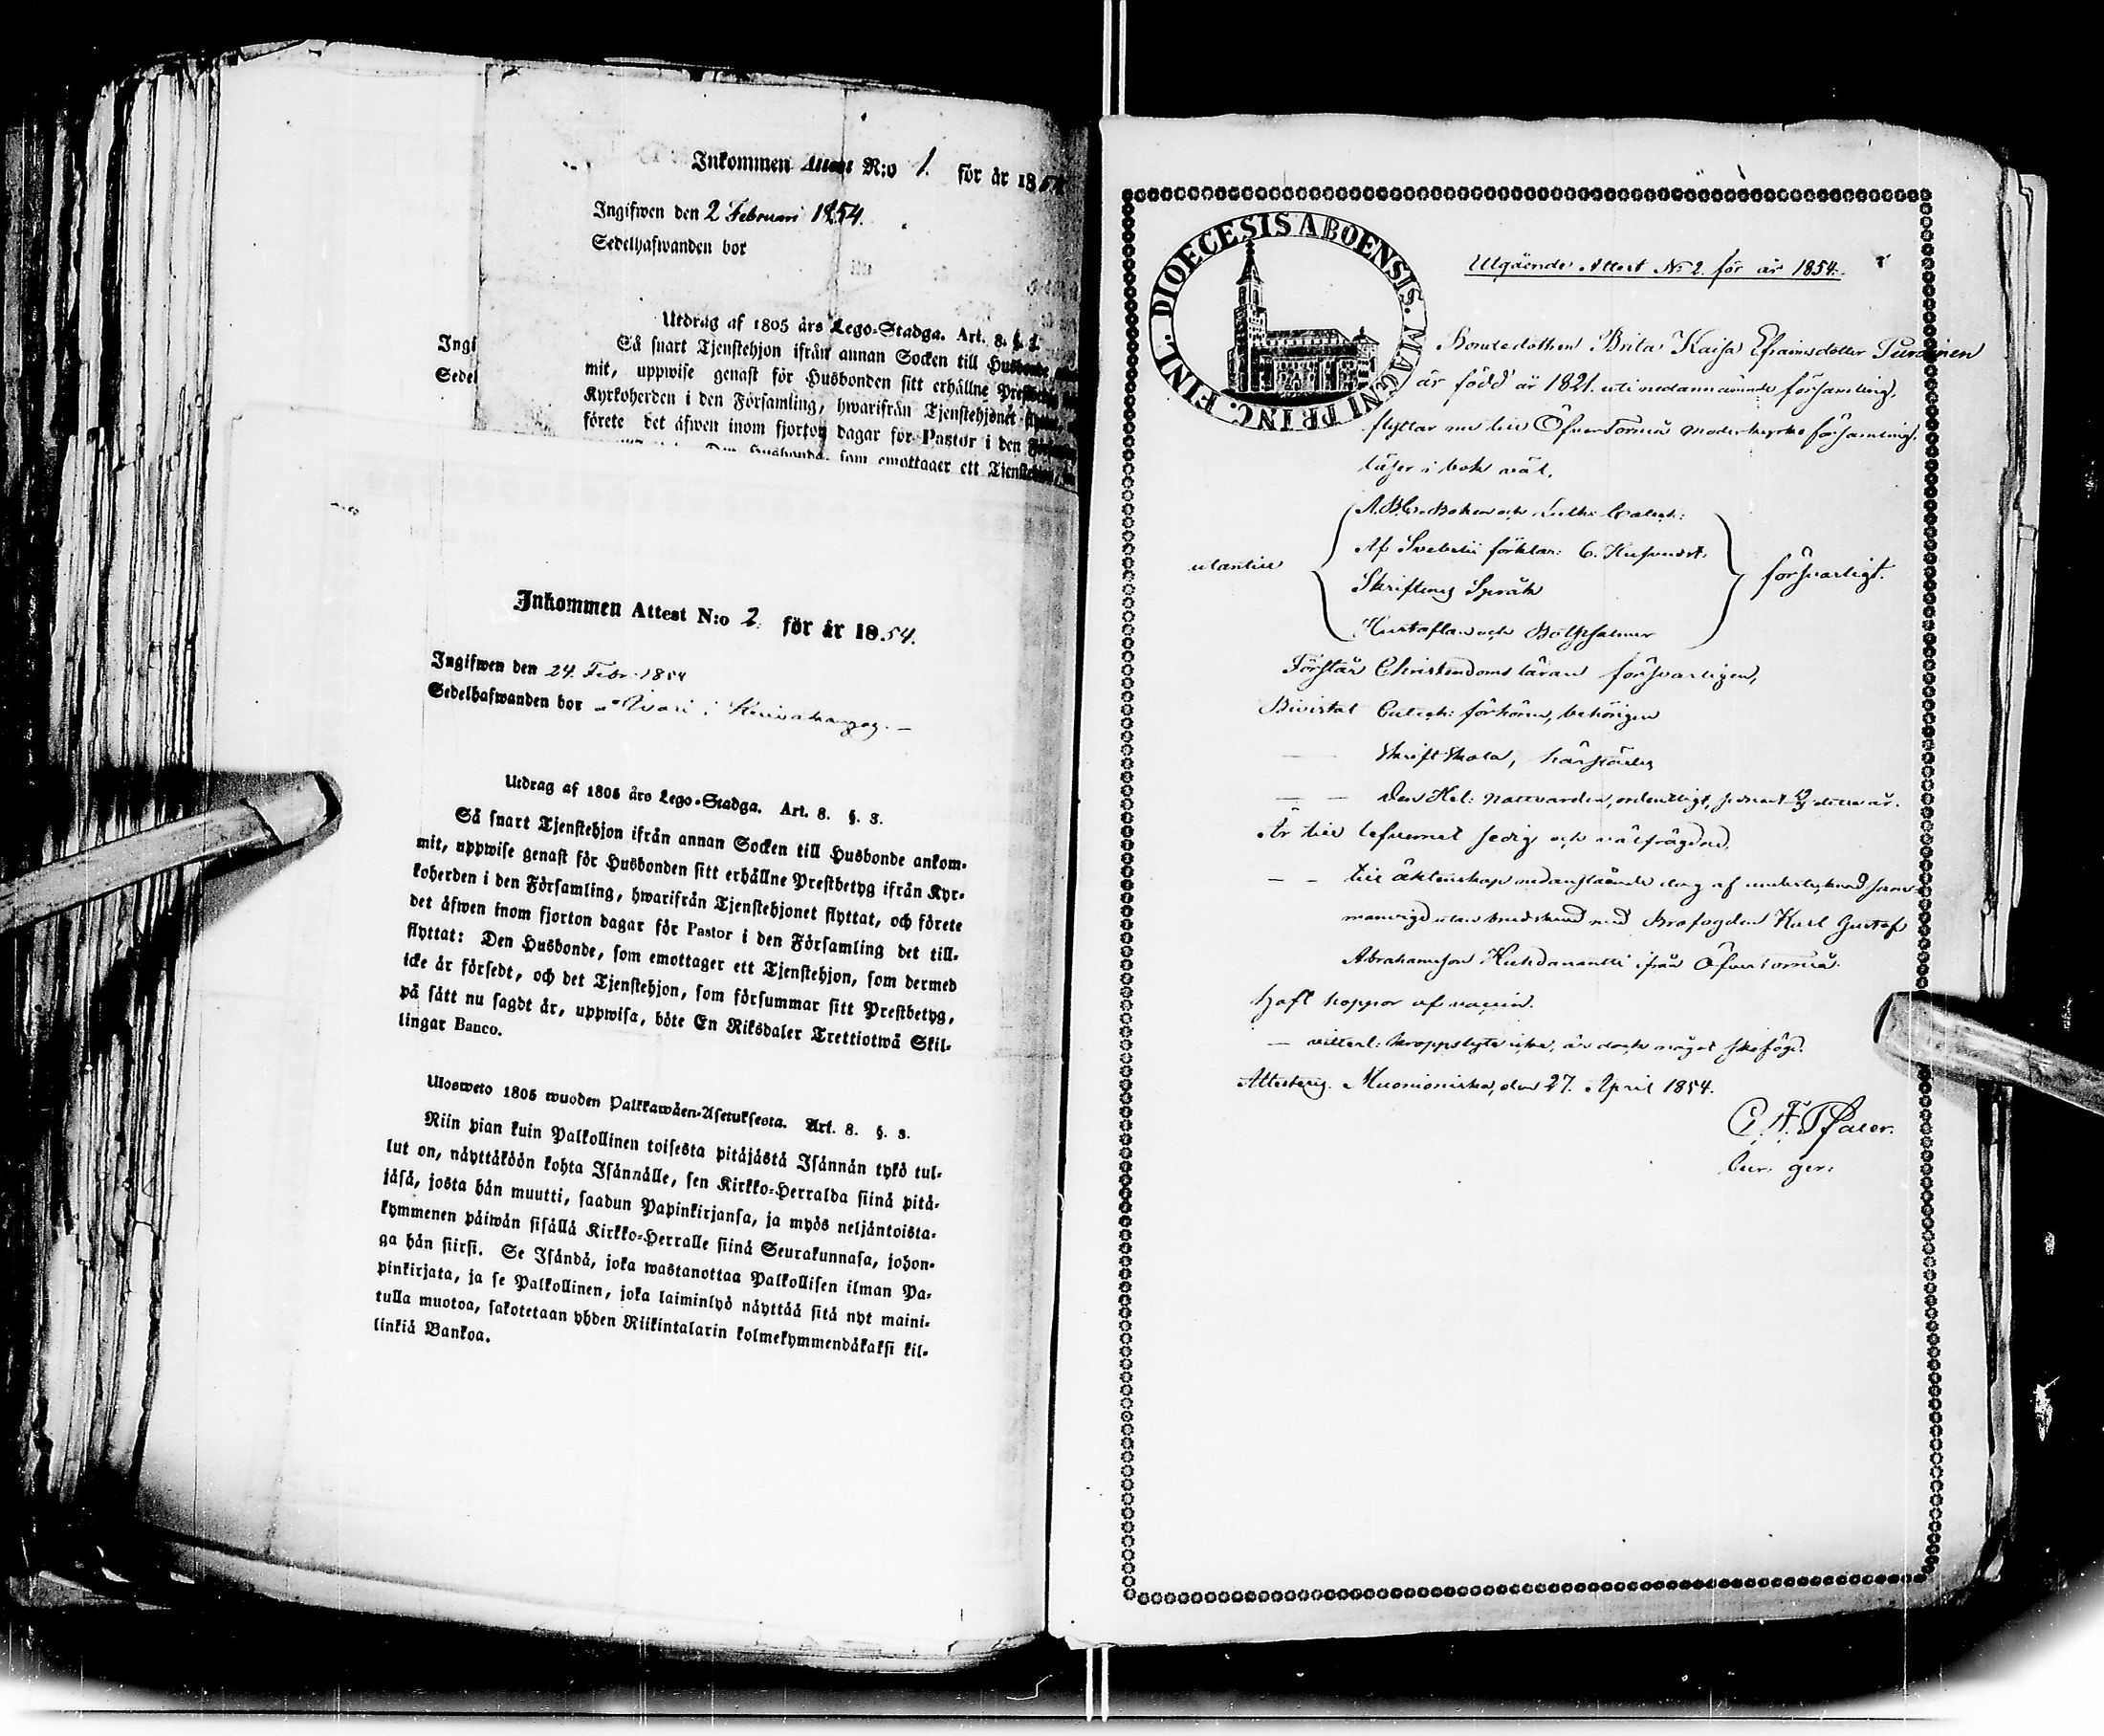 Inkommen Attest N:o 1. för år 1854
Ingifwen den 2 Februari 1854.
Sedelhafwanden bor
Utdrag af 1805 års Lego-Stadga. Art. 8. §. 3.
Så snart Tjenstehjon ifrån annan Socken till Husbonde
mit, uppwise genast för Husbonden sitt erhållne
Kyrkoherden i den Församling, hwarifrån Tjenstehjonet
förete det äfwen inom fjorton dagar för Pastor i den
Den Husbonde, som emottager ett
Ingi
Sedel
Inkommen Attest N:o 2. för år 1854.
Ingifwen den 24. Febr. 1854
Sedelhafwanden bor
Utdrag af 1805 års Lego-Stadga. Art. 8. §. 3.
Så snart Tjenstehjon ifrån annan Socken till Husbonde ankom-
mit, uppwise genast för Husbonden sitt erhållne Prestbetyg ifrån Kyr-
koherden i den Församling, hwarifrån Tjenstehjonet flyttat, och förete
det äfwen inom fjorton dagar för Pastor i den Församling det till-
flyttat: Den Husbonde, som emottager ett Tjenstehjon, som dermed
icke är försedt, och det Tjenstehjon, som försummar sitt Prestbetyg,
på sätt nu sagdt är, uppwisa, böte En Riksdaler Trettiotwå Skil-
lingar Banco.
Ulosweto 1805 wuoden Palkkawäen-Asetuksesta. Art. 8. §. 3.
Niin pian kuin Palkollinen toisesta pitäjästä Isännän tykö tul-
lut on, näyttäköön kohta Isännälle, sen Kirkko-Herralda siinä pitä-
jäsä, josta hän muutti, saadun Papinkirjansa, ja myös neljäntoista-
kymmenen päiwän sisällä Kirkko-Herralle siinä Seurakunnasa, johon-
ga hän siirsi. Se Isändä, joka wastanottaa Palkollisen ilman Pa-
pinkirjata, ja se Palkollinen, joka laiminlyö näyttää sitä nyt maini-
tulla muotoa, sakotetaan yhden Riikintalarin kolmekymmendäkaksi kil-
linkiä Bankoa.
DIOECESIS ABOENSIS. MAGNI PRINC. FINL.
Utgående Attest No 2. för år 1854.
Bondedottren Brita Kaisa Efraimsdotter
är född år 1821. uti nedannämnde församling,
flyttar nu till Öfver Torneå moderkyrko församling.
läser i bok väl.
A.B.C. Boken och Luth: Catech:
Af Svebelii förklar: 6. Hufvudst:
Skriftenes Språk
Hustaflan och Botpsalmer
utantill
försvarligt.
Förstår Christendoms läran försvarligen,
Bivistat Catech: förhören, behörigen
Skriftskola,
Den Hel: Nattvarden, ordentligt, senast detta år.
Är till lefvernet sedig och välfrägdad,
till äktenskap nedanstående dag af undertecknad sam-
manvigd utan brudskrud med Brofogden Karl Gustaf
Abrahamsson ifrån Öfvertorneå.
Haft koppor af vaccin.
veterl: kroppslyte icke, är dock något skelögd.
Attesteras. Muonioniska, den 27. April 1854.
Cur: ger: